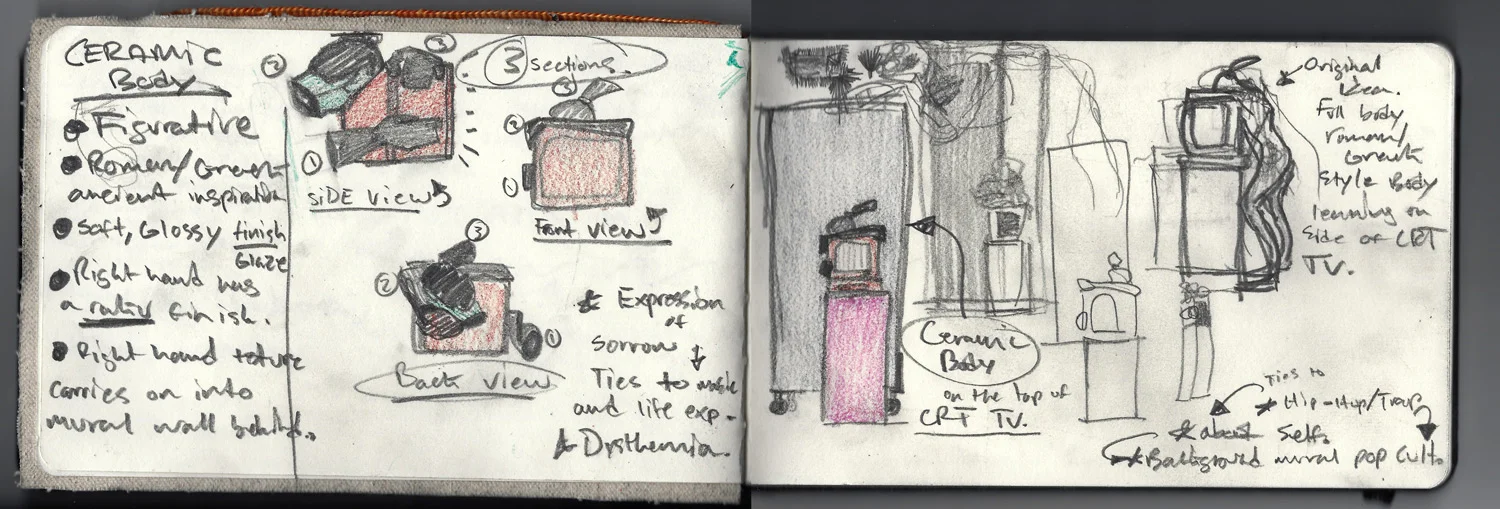 CERAMIC
Body
Figurative
Roman/Greek
ancient inspiration
Soft, Glossy finish
Glaze
Right hand has
a finish.
Right hand texture
carries on into
mural wall behind.
② ③
①
SIDE view
③ sections.
③
②
①
Front view
③
②
①
Back view
* Expression
of
Sorrow ↓
Ties to music
and life exp-
* Dysthemia.
Ceramic
Body
on the top of
CRT TV.
Original
Idea.
Full body
roman/
Greek
Style Body
leaning on
side of CRT
TV.
Ties to
* Hip-Hop/Trap
* about Self.
* Background mural pop cult.